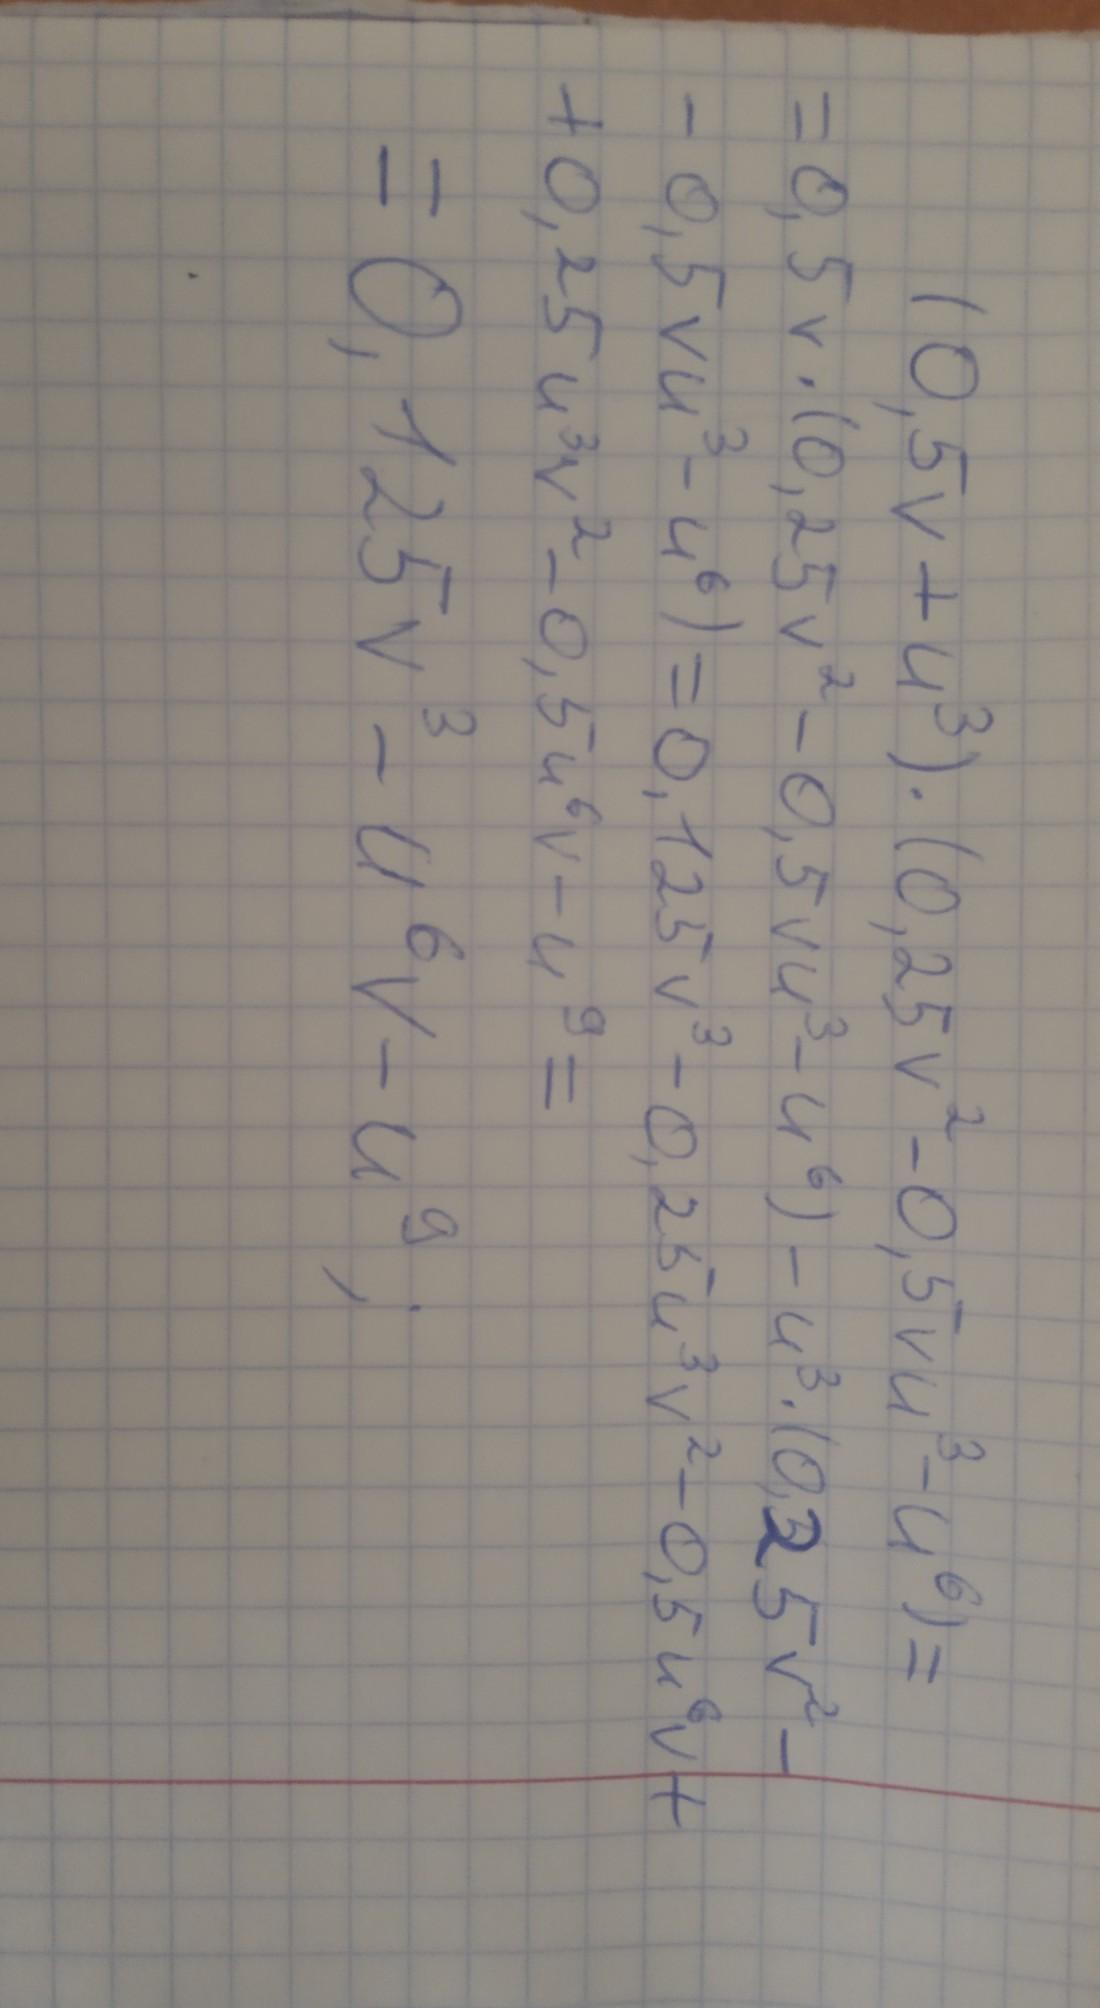 (0,5v+u³)·(0,25v²-0,5vu³-u⁶)=
=0,5v·(0,25v²-0,5vu³-u⁶)-u³·(0,25v²-
-0,5vu³-u⁶)=0,125v³-0,25u³v²-0,5u⁶v+
+0,25u³v²-0,5u⁶v-u⁹=
=0,125v³-u⁶v-u⁹;